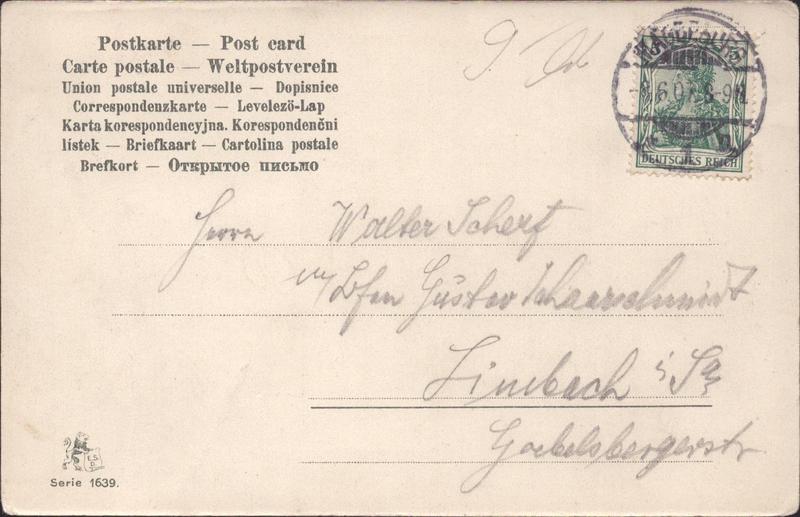 Postkarte — Post card
Carte postale — Weltpostverein
Union postale universelle — Dopisnice
Correspondenzkarte — Levelező-Lap
Karta korespondencyjna. Korespondenčni
listek — Briefkaart — Cartolina postale
Brefkort — Открытое письмо
MAGDEBURG
6.07. 8-9
1
DEUTSCHES REICH
Herrn Walter Scherf
Gustav Schaarschmidt
Limbach i Sa
Gabelsbergerstr
E.S.
D.
Serie 1639.